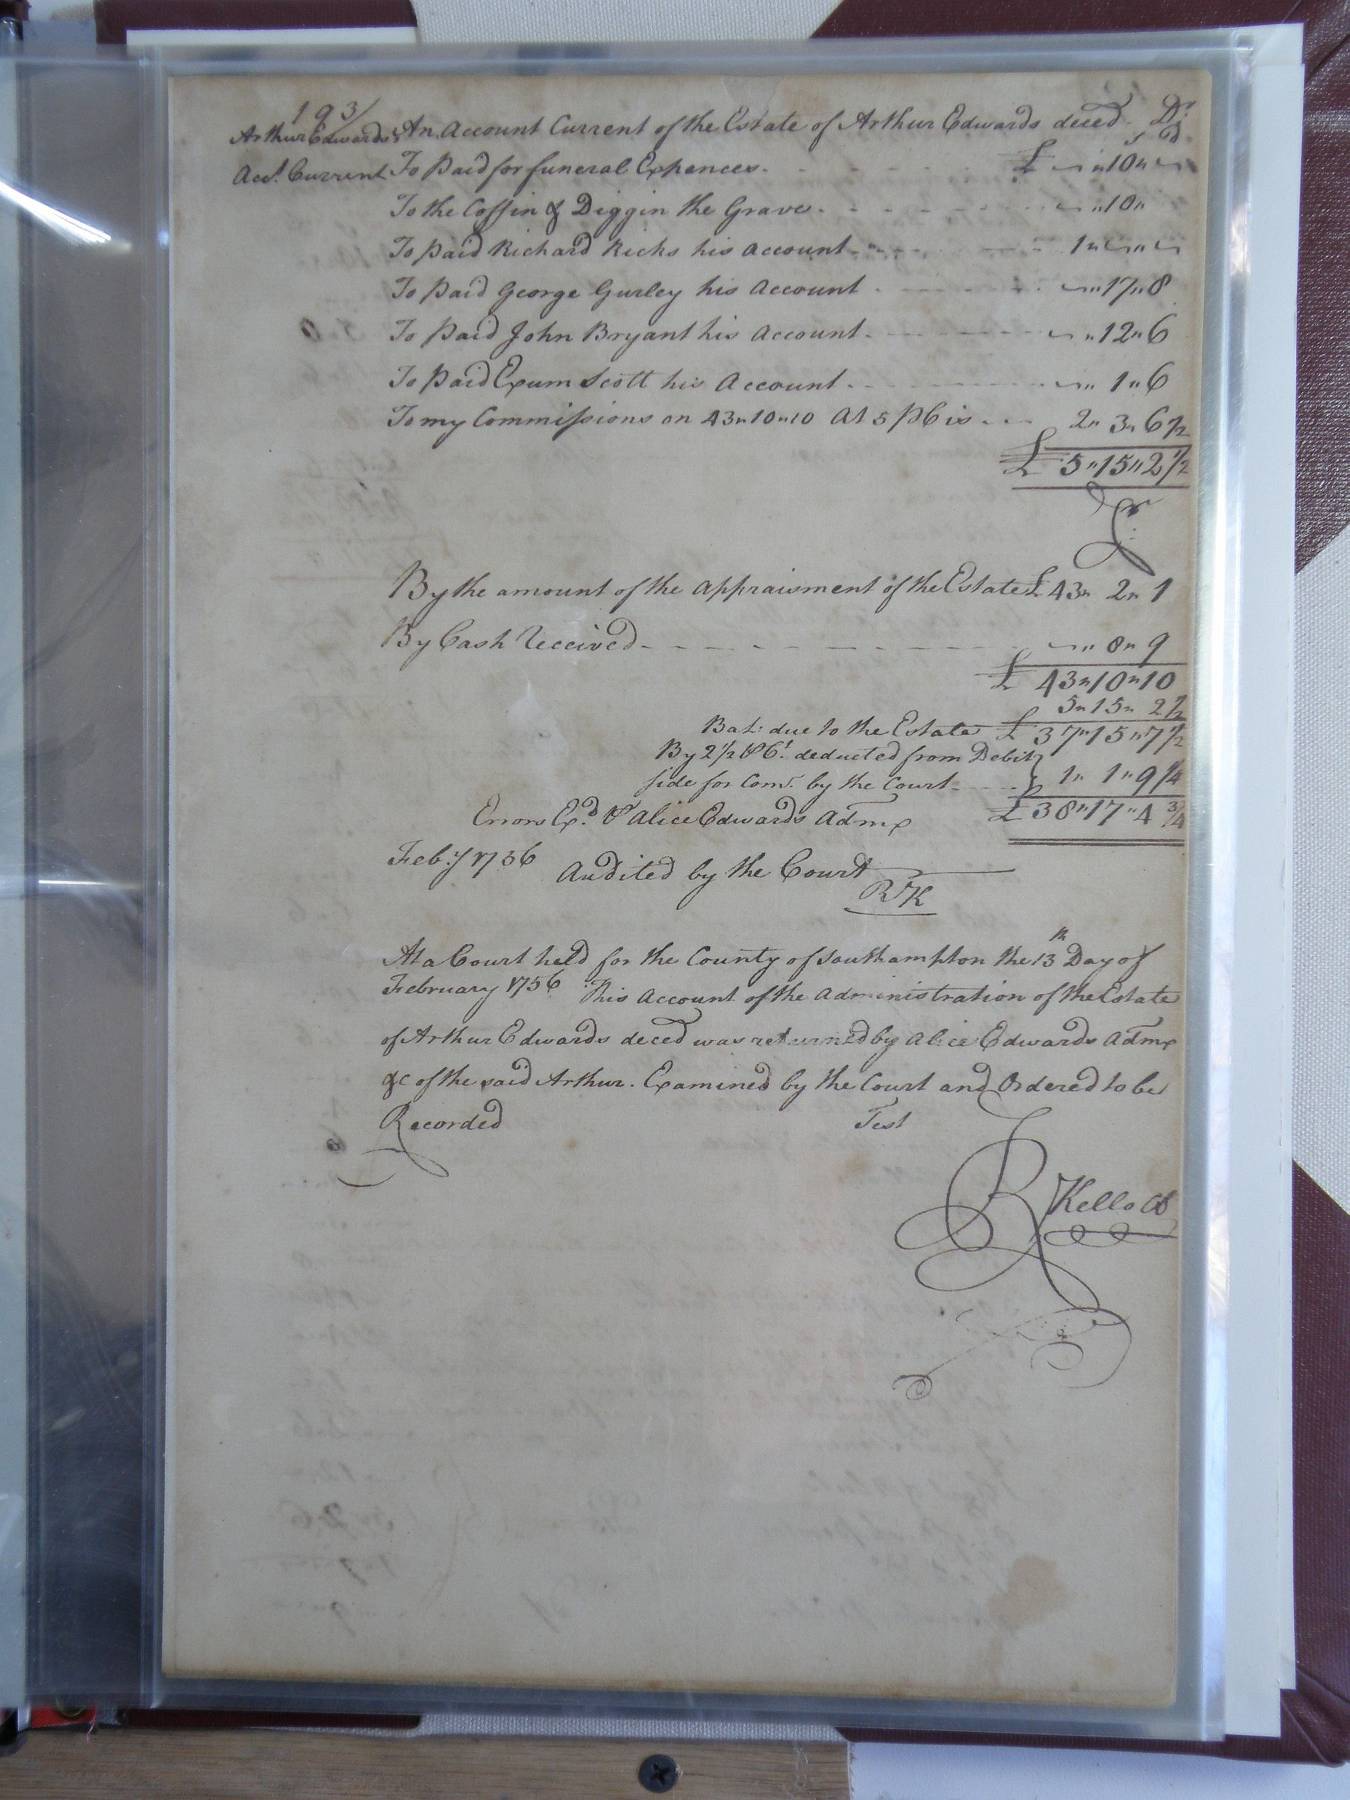 193/
Arthur Edwards's An Account Current of the Estate of Arthur Edwards deced Dr
Acct. Current To Paid for funeral Expences - - - £ ~ " 10 " ~
To the Coffin & Diggin the Grave - - - ~ " 10 "
To paid Richard Ricks his account - - - 1 " ~ " ~
To paid George Gurley his account - - - ~ " 17 " 8
To paid John Bryant his account - - - ~ " 12 " 6
To paid Exum Scott his account - - - ~ " 1 " 6
To my Commissions on 43 " 10 " 10 At 5 P Ct is - - - 2 " 3 " 6 1/2
£ 5 " 15 " 2 1/2
Cr
By the amount of the appraisment of the Estate £ 43 " 2 " 1
By Cash Received - - - ~ " 8 " 9
£ 43 " 10 " 10
5 " 15 " 2 1/2
Bal: due to the Estate £ 37 " 15 " 7 1/2
By 2 1/2 P Ct. deducted from Debit
side for Comr. by the Court - - - 1 " 1 " 9 1/4
Errors Exd. P Alice Edwards Admx £ 38 " 17 " 4 3/4
Feb:y 1756 Audited by the Court
RK
At a Court held for the County of Southampton the 13th Day of
February 1756 This account of the administration of the Estate
of Arthur Edwards deced was returned by Alice Edwards Admx
&c of the said Arthur. Examined by the Court and Ordered to be
Recorded Test
R Kello Cl